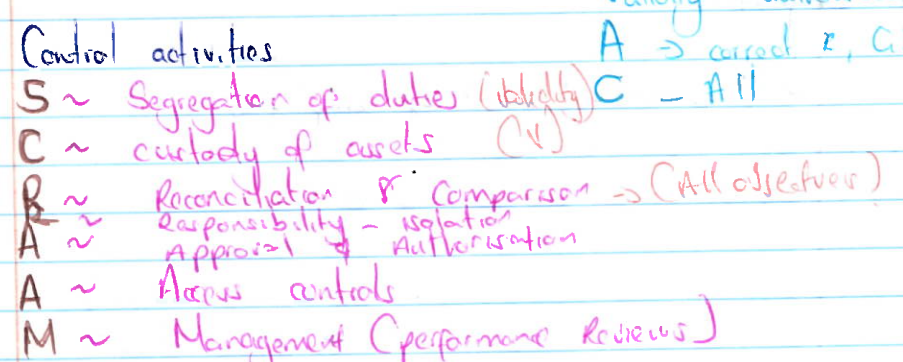 Control activities
A → correct
S ~ Segregation of duties (validity)
C - All
C ~ custody of assets (V)
R ~ Reconciliation & Comparison → (All objectives)
R ~ Responsibility - isolation
A ~ Approval & Authorisation
A ~ Access controls
M ~ Management (performance Reviews)